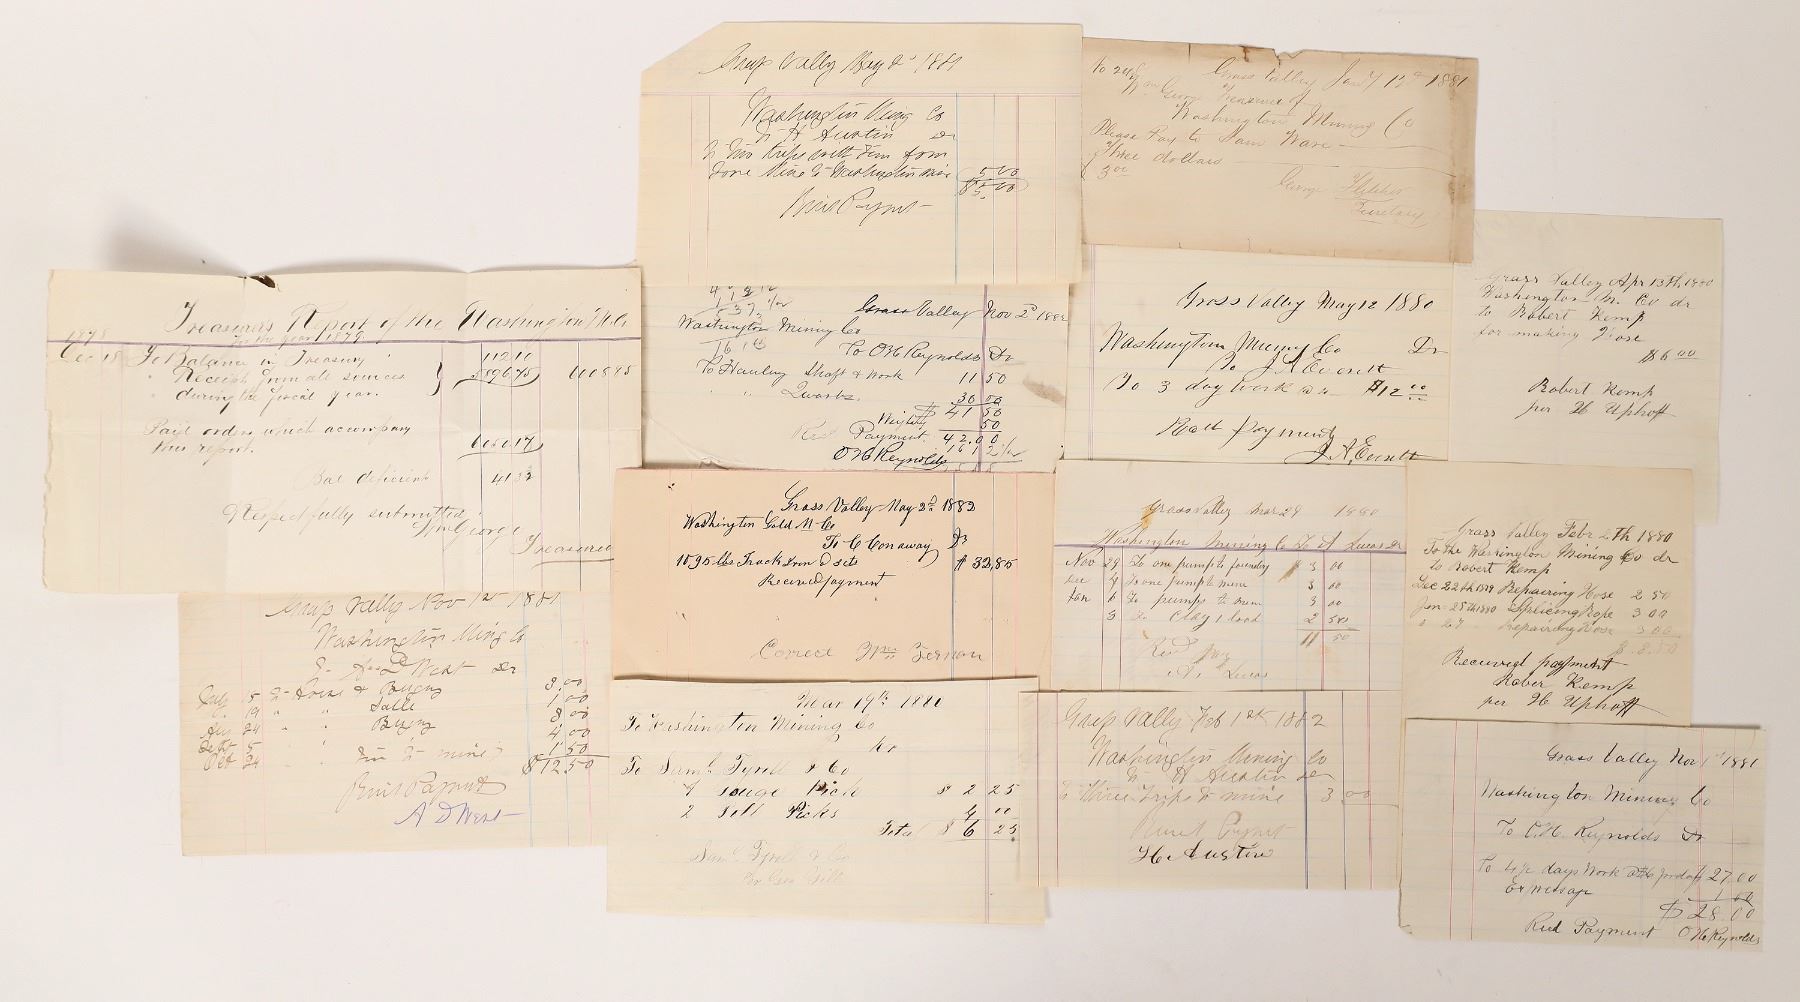 Treasurers Report of the Washington M Co
for the year 1879
1878
Dec 18 To Balance in Treasury 112 10
" Receipts from all sources 5096.75 } 6108 45
" during the fiscal year.
Paid orders which accompany
this report. 6150 17
Bal deficient 41 32
Respectfully submitted
Wm George
Treasurer
Grass Vally Nov 1st 1881
Washington Ming Co
To A D West Dr
July 15 To Horse & Buggy 3.00
" 19 " " Saddle 1.00
Aug 24 " " Buggy 3 00
Sept 5 " " 4 00
Oct 24 " " mine 1 50
$12 50
Recd Paymnt
A D West
Grass Vally May 2d 1881
Washington Ming Co
To H Austin Dr
To Two trips with Team from
Mine to Washington mine 5.00
$5.00
Recd Paymnt
Grass Valley Nov 2d 1882
Washington Mining Co
To O H Reynolds Dr
To Hauling Shaft & Work 11 50
" " Quartz 30 00
$ 41 50
50
Payment. 42.00
O H Reynolds
Grass Valley May 2d 1882
Washington Gold M Co
To C Conaway Dr
1095 lbs Track Iron @ 3 cts $ 32,85
Received payment
Correct Wm Fernon
Mar 19th 1880
To Washington Mining Co
To Saml Tyrell & Co
1 Pick $ 2 25
2 Picks 4 00
Total $ 6 25
Saml Tyrell & Co
Per Geo Gill
Grass Valley Jany 12th 1881
Wm George Treasurer of
Washington Mining Co
Please Pay to Sam Ware
Three dollars
$ 3 00
George Fletcher
Secretary
Grass Valley May 12 1880
Washington Mining Co Dr
To J. A Everett
To 3 day work @ 4 $12 00
Recd payment
J. A. Everett
Grass Valley Apr 13th, 1880
Washington M. Co dr
to Robert Kemp
for making Hose
$6 00
Robert Kemp
per H Uphoff
Grass Valley Mar 29 1880
Washington Mining Co To A Lucas Dr
Nov 29 To one pump to foundry $ 3 00
Dec 4 To one pump to mine 3 00
Jan 1 To pumps to mine 3 00
" 3 To Clay 1 load 2 50
11 50
Recd pay
A. Lucas
Grass Valley Febr 2th 1880
To the Washington Mining Co dr
to Robert Kemp
Dec 22th 1879 Repairing Hose 2 50
Jan 25th 1880 Splicing Rope 3 00
" 27 Repairing Hose 3 00
$ 8.50
Received payment
Rober Kemp
per H Uphoff
Grass Vally Feb 1st 1882
Washington Mining Co
To H Austin Dr
To Three Trips to mine 3.00
Recd Paymnt
H. Austin
Grass Valley Nov 1st 1881
Washington Mining Co
To O. H. Reynolds Dr
To 4 1/2 days Work @ $6 per day $ 27.00
1 00
$ 28.00
Recd Payment O H Reynolds